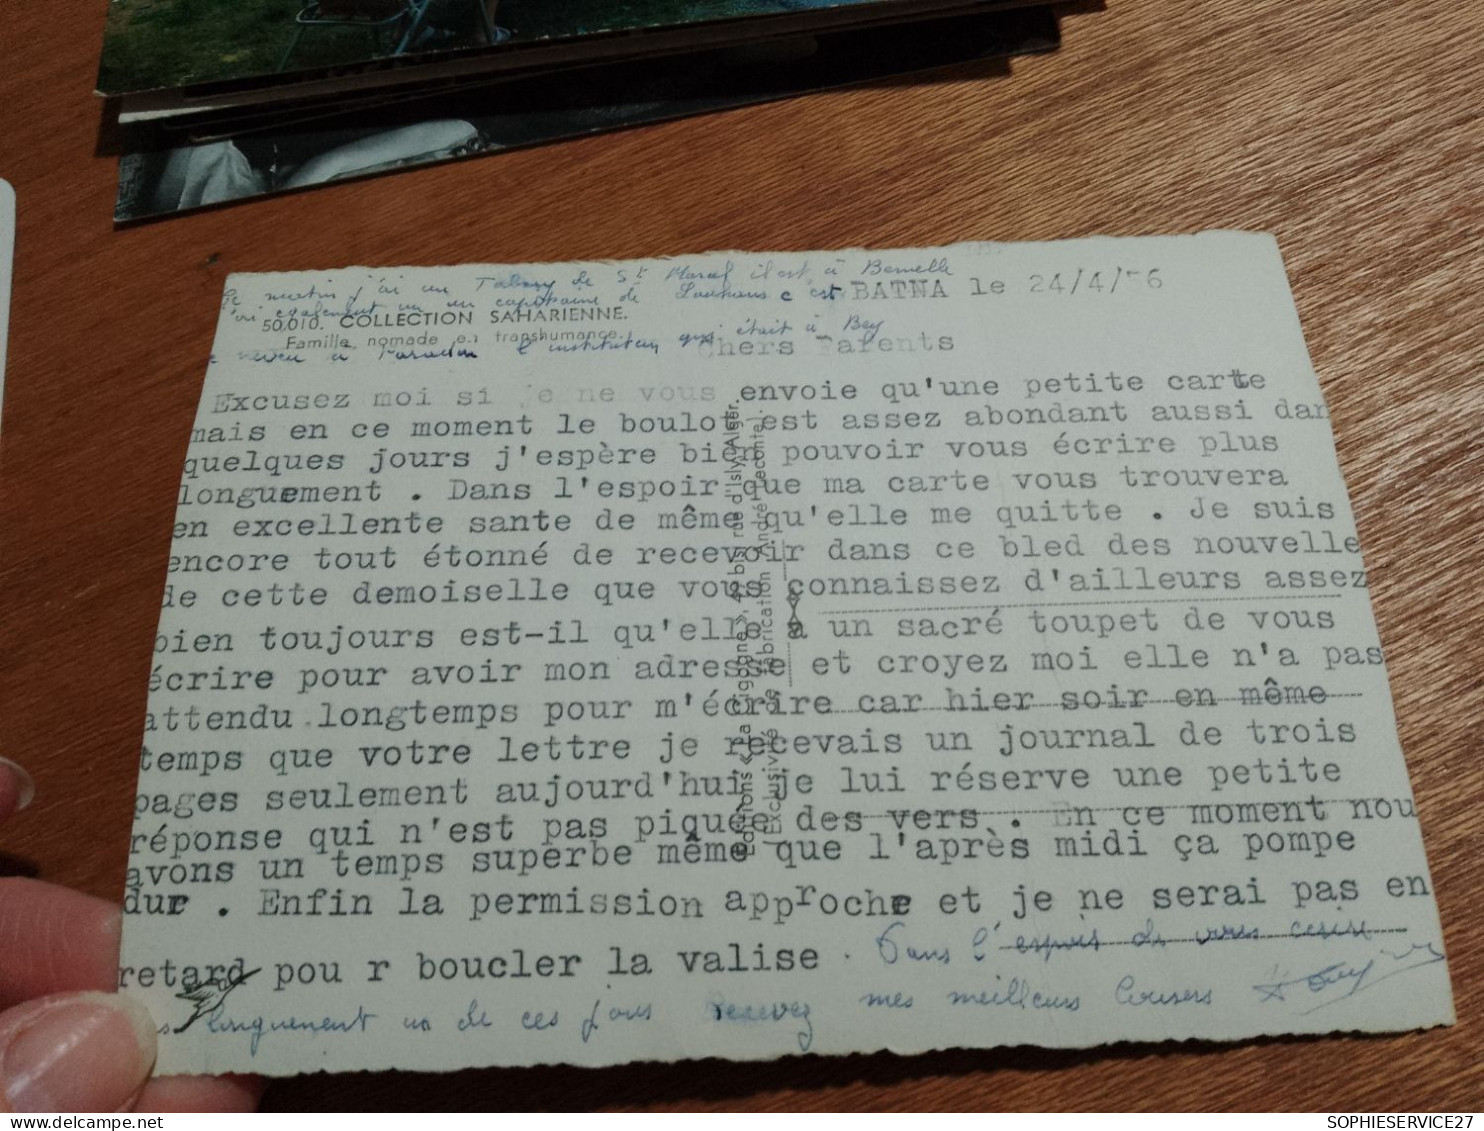 Ce matin j'ai un de St Marcel il est à
également un capitaine de Louhans c'est
BATNA le 24/4/56
50.010. COLLECTION SAHARIENNE.
Famille nomade en transhumance.
l' qui était à Bey
Chers Parents
Excusez moi si je ne vous envoie qu'une petite carte
mais en ce moment le boulot est assez abondant aussi dan
quelques jours j'espère bien pouvoir vous écrire plus
longuement . Dans l'espoir que ma carte vous trouvera
en excellente sante de même qu'elle me quitte . Je suis
encore tout étonné de recevoir dans ce bled des nouvelle
de cette demoiselle que vous connaissez d'ailleurs assez
bien toujours est-il qu'elle a un sacré toupet de vous
écrire pour avoir mon adresse et croyez moi elle n'a pas
attendu longtemps pour m'écrire car hier soir en même
temps que votre lettre je recevais un journal de trois
pages seulement aujourd'hui je lui réserve une petite
réponse qui n'est pas piquée des vers . En ce moment nou
avons un temps superbe même que l'après midi ça pompe
dur . Enfin la permission approche et je ne serai pas en
retard pou r boucler la valise . Dans l'espoir de vous écrire
longuement un de ces jours recevez mes meilleurs baisers
Editions « La Cigogne », bis, rue d'Isly, Alger.
Exclusivité de fabrication (André Leconte).
SOPHIESERVICE27